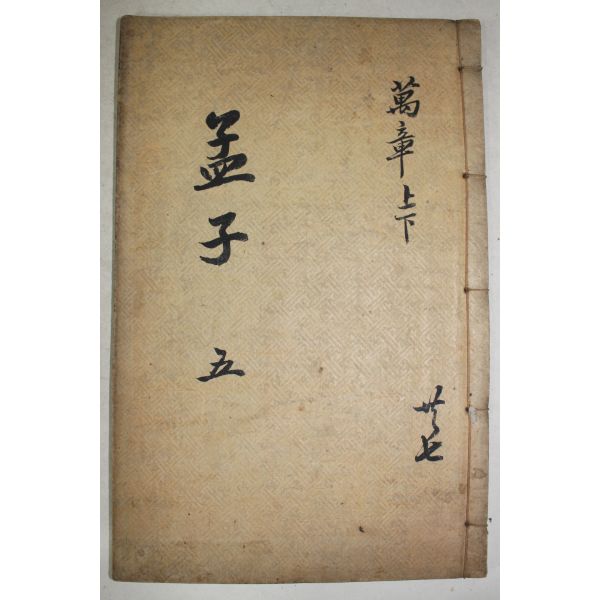 萬章上下
孟子 五
共七